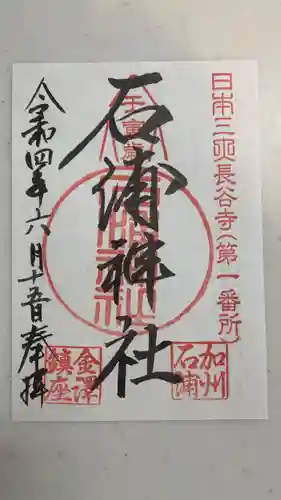 日本三大長谷寺(第一番所)
壬寅歳
石浦神社
加州
石浦
令和四年六月十五日奉拝
金澤
鎮座